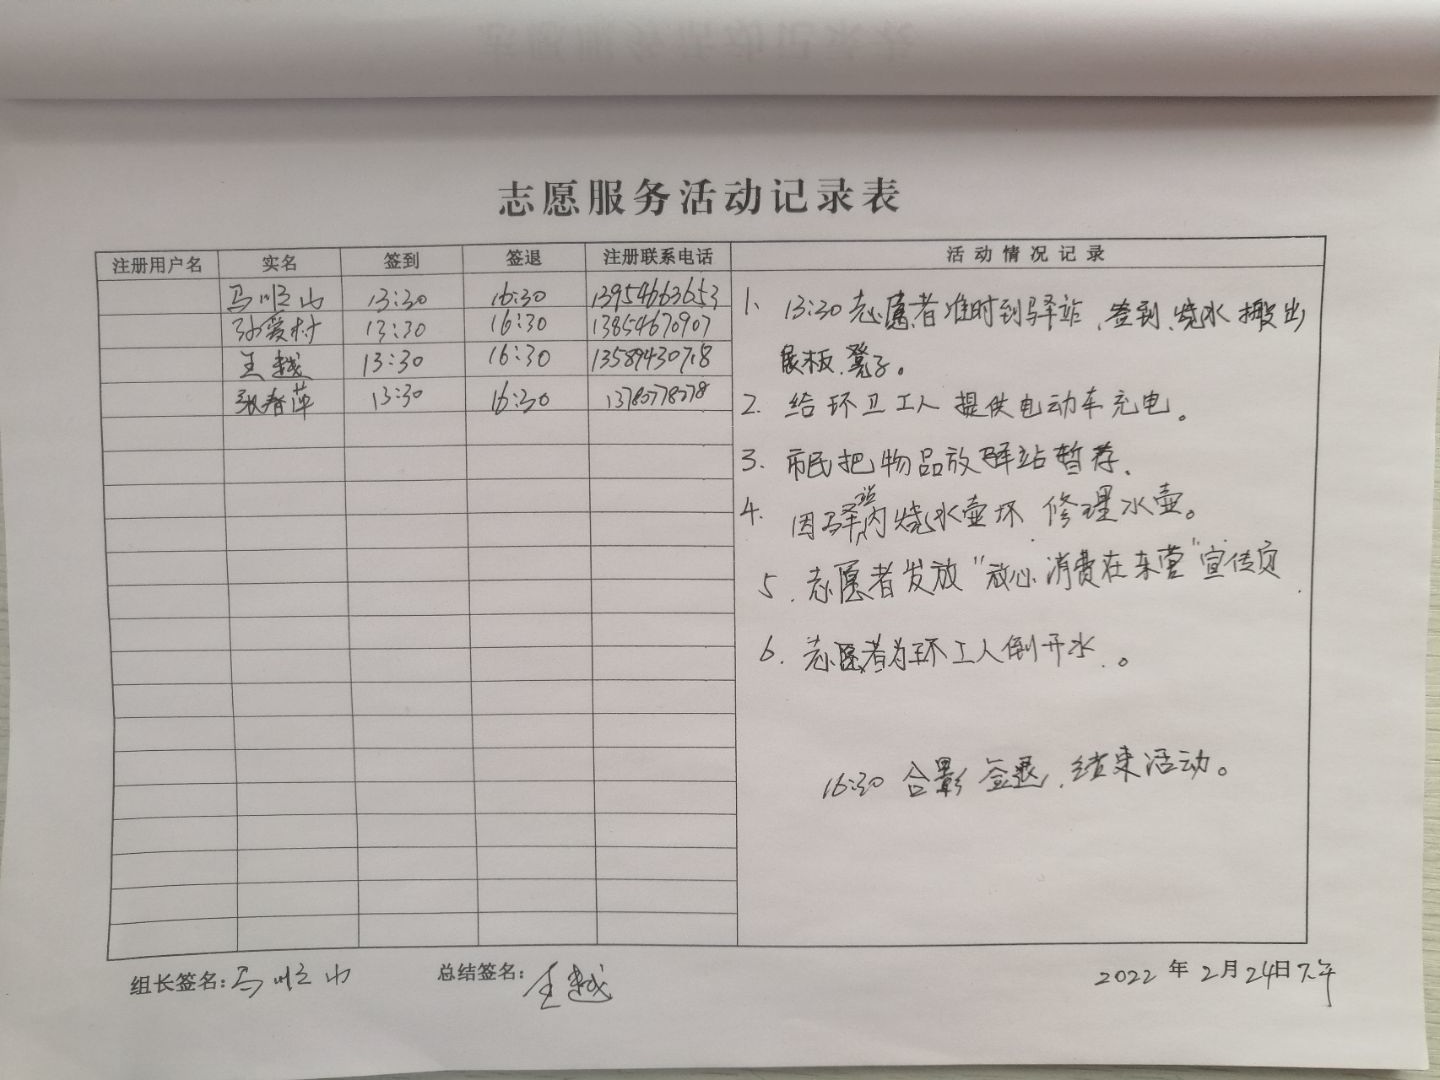 志愿服务活动记录表
注册用户名 实名 签到 签退 注册联系电话 活动情况记录
马顺山 13:30 16:30 13954663653
孙爱村 13:30 16:30 13854670907
王越 13:30 16:30 13589430718
张春萍 13:30 16:30
1. 13:30志愿者准时到驿站、签到、烧水 搬出
展板、凳子。
2. 给环卫工人提供电动车充电。
3. 市民把物品放驿站暂存.
4. 因驿站内烧水壶坏 修理水壶。
5. 志愿者发放"放心消费在东营"宣传页
6. 志愿者为环工人倒开水.。
16:30 合影 签退, 结束活动。
组长签名:马顺山 总结签名:王越 2022年2月24日下午